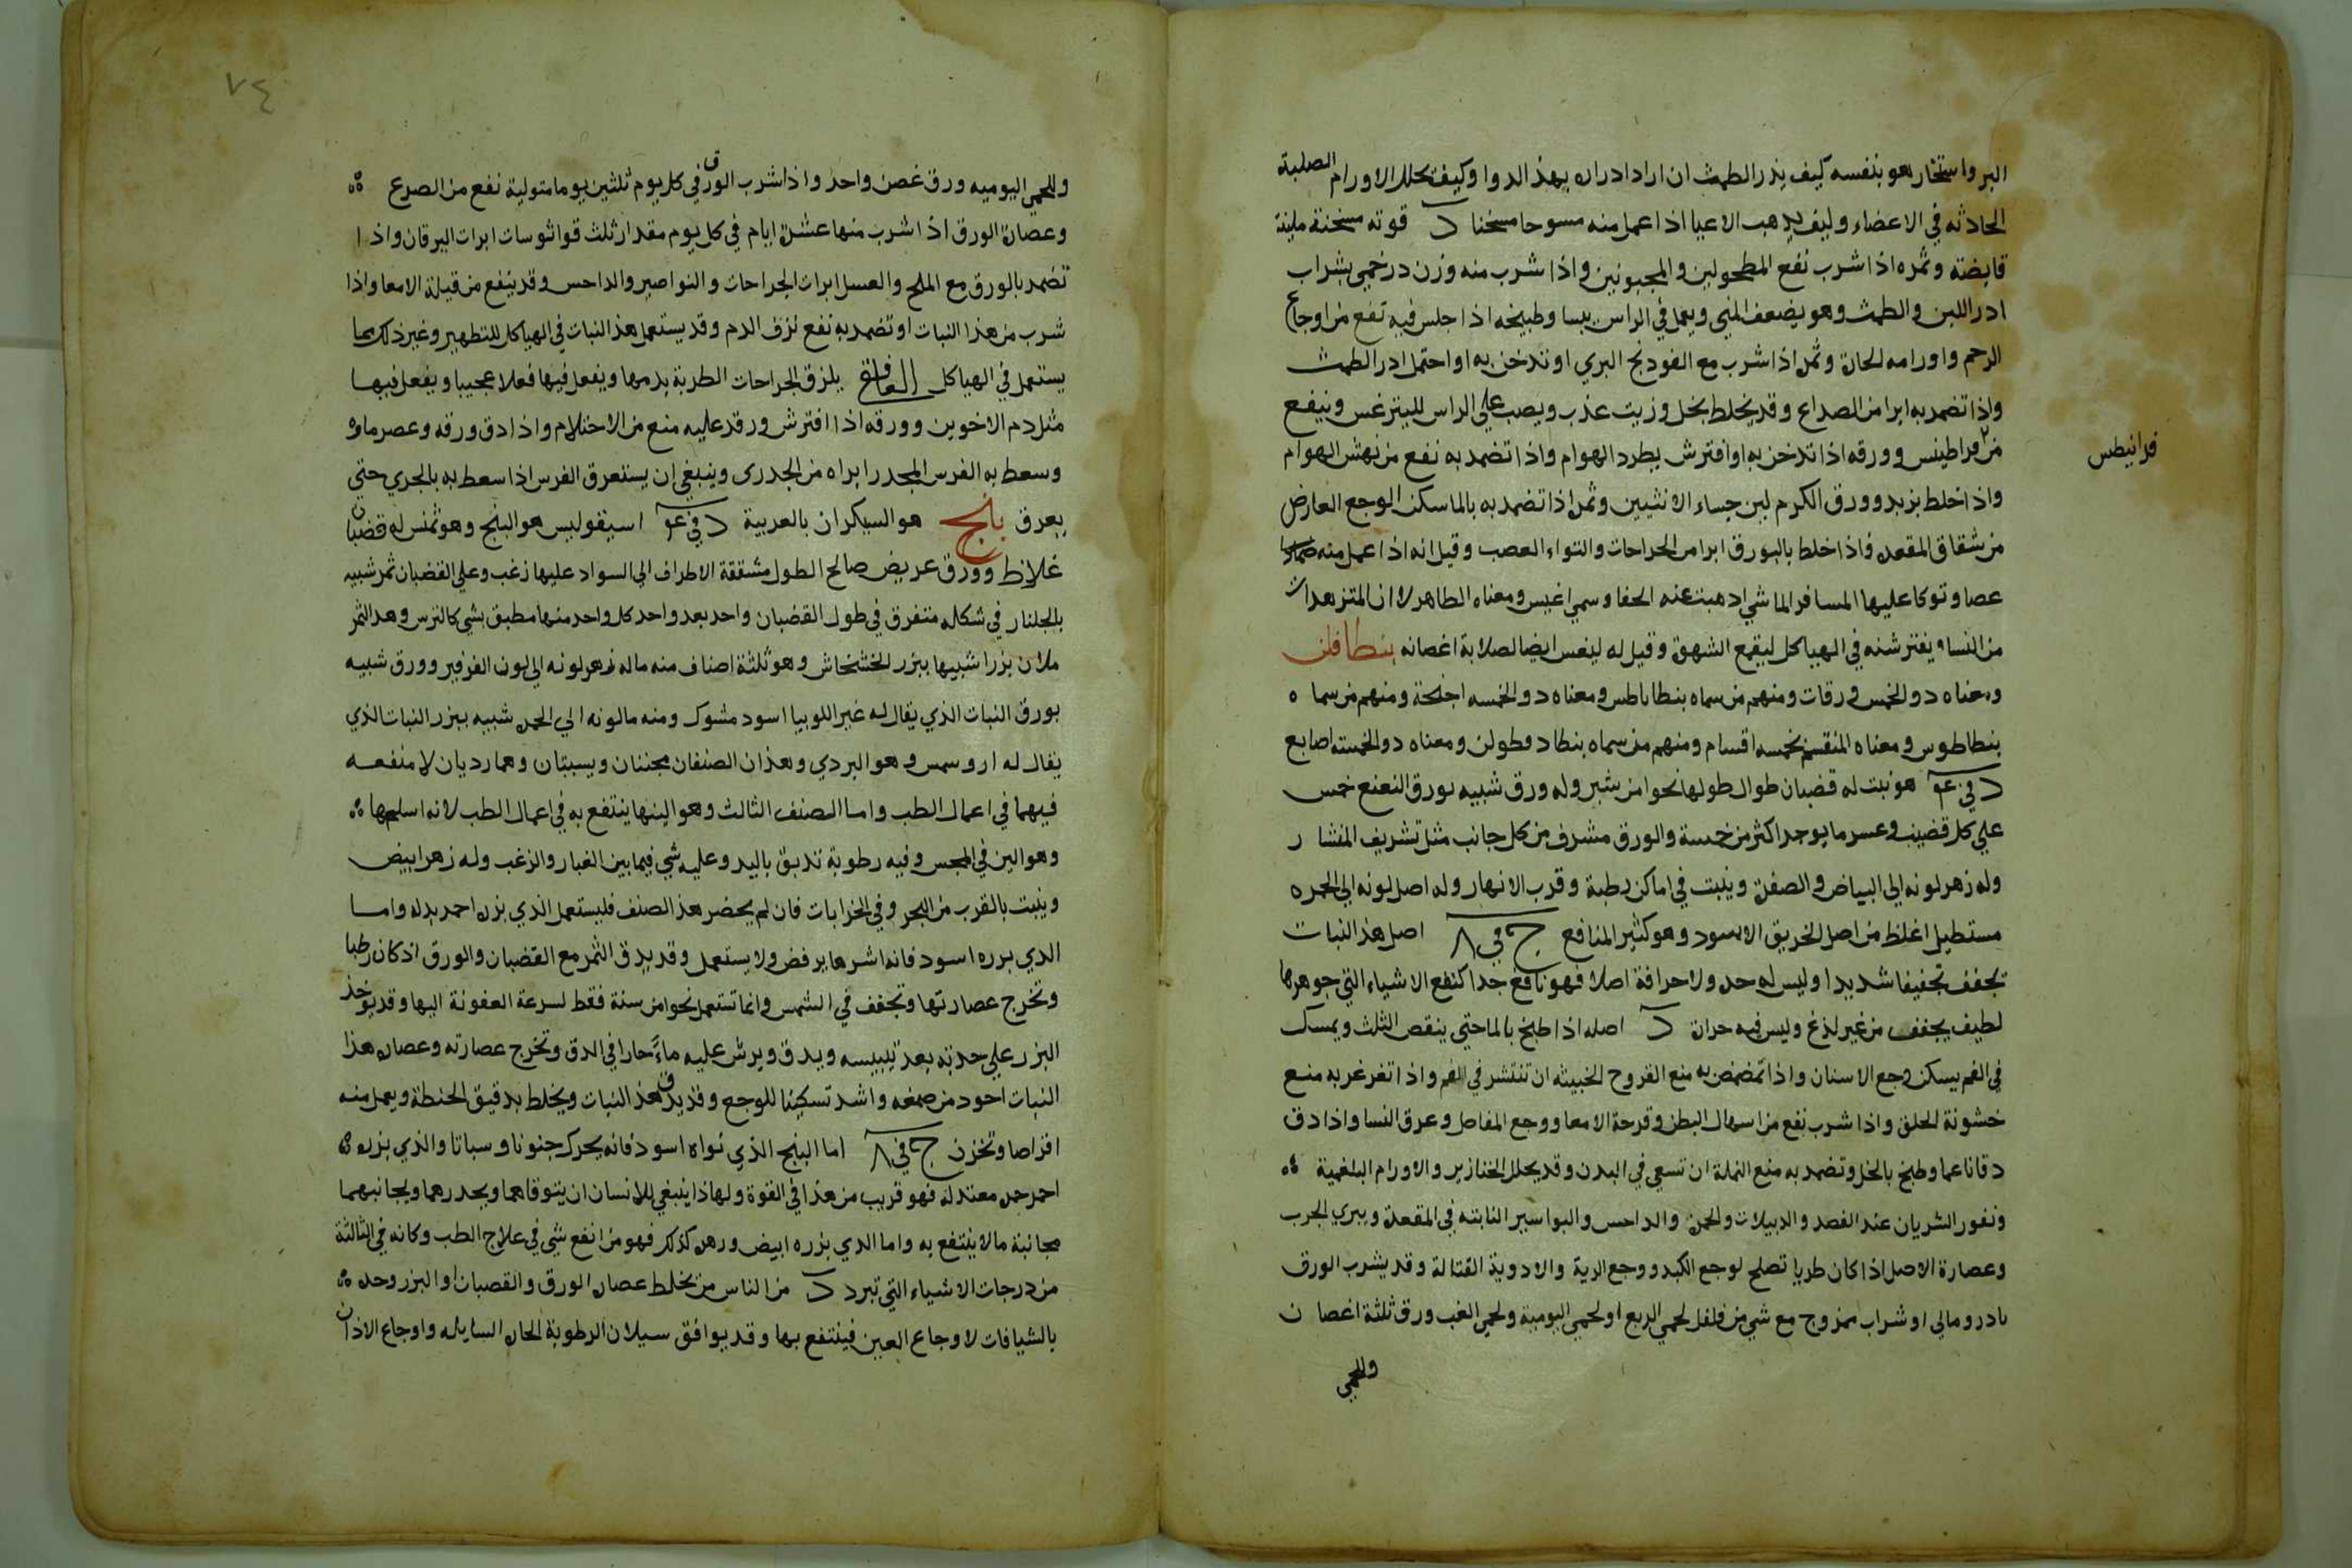 البر واستخار هو بنفسه كيف يدر الطمث ان اراد ادراره بهذا الدوا وكيف يحلل الاورام الصلبة
الحادثه في الاعضاء وكيف يذهب الاعيا اذا عمل منه مسوحا مسخنا د قوته مسخنة ملينة
قابضته وثمره اذا شرب نفع المطحولين والمجبونين واذا شرب منه وزن درخمي بشراب
ادر اللبن والطمث وهو يضعف المني ويعمل في الراس يبسا وطبيخه اذا جلس فيه نفع من اوجاع
الرحم واورامه الحارة وثمره اذا شرب مع الفودنج البري او تدخن به او احتمل ادر الطمث
واذا تضمد به ابرا من الصداع وقد يخلط بخل وزيت عذب ويصب على الراس لليترغس وينفع
من فراطيس وورقه اذا تدخن به او افترش يطرد الهوام واذا تضمد به نفع من نهش الهوام
فرانيطس
واذا خلط بزبد وورق الكرم لين جساء الانثيين وثمره اذا تضمد به بالما سكن الوجع العارض
من شقاق المقعده واذا خلط بالبورق ابرا من الجراحات والتواء العصب وقيل انه اذا عمل منه
عصا وتوكا عليها المسافر الماشي اذهبت عنه الحفا وسمي اغيس ومعناه الطاهر لان المتزهدات
من النساء يفترشنه في الهياكل ليقمع الشهوة وقيل له ليغس ايضا لصلابة اغصانه بنطافلن
ومعناه ذو الخمس ورقات ومنهم من سماه بنطاباطس ومعناه ذو الخمسه اجنحة ومنهم من سماه
بنطاطوس ومعناه المنقسم بخمسه اقسام ومنهم من سماه بنطادقطولن ومعناه ذو الخمسه اصابع
د في عو هو نبت له قضبان طوال طولها نحوا من شبر وله ورق شبيه بورق النعنع خمس
على كل قضيب وعسر ما يوجد اكثر من خمسة والورق مشرف من كل جانب مثل تشريف المنشار
وله زهر لونه الى البياض والصفرة وينبت في اماكن رطبة وقرب الانهار وله اصل لونه الى الحمره
مستطيل اغلظ من اصل الخربق الاسود وهو كثير المنافع ج في ٨ اصل هذا النبات
يجفف تجفيفا شديدا وليس له حده ولا حرافة اصلا فهو نافع جدا كنفع الاشياء التي جوهرها
لطيف يجفف من غير لذع وليس فيه حرارة د اصله اذا طبخ بالما حتى ينقص الثلث ويمسك
في الفم يسكن وجع الاسنان واذا تمضمض به منع القروح الخبيثه ان تنتشر في الفم واذا تغرغر به منع
خشونة الحلق واذا شرب نفع من اسهال البطن وقرحة الامعا ووجع المفاصل وعرق النسا واذا دق
دقا ناعما وطبخ بالخل وتضمد به منع النملة ان تسعى في البدن وقد يحلل الخنازير والاورام البلغمية
ونفور الشريان عند الفصد والدبيلات والحمرة والداحس والبواسير النابته في المقعدة ويبري الجرب
وعصارة الاصل اذا كان طريا تصلح لوجع الكبد ووجع الرية والادوية القتالة وقد يشرب الورق
بادرومالي او شراب ممزوج مع شي من فلفل لحمى الربع او لحمى اليومية ولحمى الغب ورق ثلثة اغصان
وللحمى
٧٤
وللحمى اليوميه ورق غصن واحد واذا شرب الورق في كل يوم ثلثين يوما متوليه نفع من الصرع
وعصارة الورق اذا شرب منها عشرة ايام في كل يوم مقدار ثلث قواثوسات ابرات اليرقان واذا
تضمد بالورق مع الملح والعسل ابرات الجراحات والنواصير والداحس وقد ينفع من قيلة الامعا واذا
شرب من هذا النبات او تضمد به نفع نزف الدم وقد يستعمل هذا النبات في الهياكل للتطهير وغير ذلك مما
يستعمل في الهياكل الغافقي يلزق الجراحات الطرية بدمها ويفعل فيها فعلا عجيبا ويفعل فيها
مثل دم الاخوين وورقه اذا افترش ورقد عليه منع من الاحتلام واذا دق ورقه وعصر ماوه
وسعط به الفرس المجدر ابراه من الجدرى وينبغي ان يستعرق الفرس اذا سعط به بالجري حتى
يعرق بنج هو السيكران بالعربية د في عو اسيقوليس هو البنج وهو ثمنس له قضبان
غلاظ وورق عريض صالح الطول مشققة الاطراف الى السواد عليها زغب وعلى القضبان ثمر شبيه
بالجلنار في شكله متفرق في طول القضبان واحد بعد واحد كل واحد منها مطبق بشي كالترس وهذا الثمر
ملان بزرا شبيها ببزر الخشخاش وهو ثلثة اصناف منه ما له زهر لونه الى لون الفرفير وورق شبيه
بورق النبات الذي يقال له عين اللوبيا اسود مشوك ومنه ما لونه الى الحمره شبيه ببزر النبات الذي
يقال له اروسمس وهو البردي وهذان الصنفان يجننان ويسبتان وهما رديان لا منفعه
فيهما في اعمال الطب واما الصنف الثالث وهو الينها ينتفع به في اعمال الطب لانه اسلمها
وهو الين في المجس وفيه رطوبة تدبق باليد وعليه شي فيما بين الغبار والزغب وله زهر ابيض
وينبت بالقرب من البحر وفي الخرابات فان لم يحضر هذا الصنف فليستعمل الذي بزره احمر بدله واما
الذي بزره اسود فانه اشرها يرفض ولا يستعمل وقد يدق الثمر مع القضبان والورق اذ كان رطبا
وتخرج عصارتها وتجفف في الشمس وانما تستعمل نحوا من سنة فقط لسرعة العفونة اليها وقد يوخذ
البزر على حدته بعد تيبيسه ويدق ويرش عليه ماء حارا في الدق وتخرج عصارته وعصارة هذا
النبات اجود من صمغه واشد تسكينا للوجع وقد يدق هذا النبات ويخلط بدقيق الحنطة ويعمل منه
اقراصا وتخزن ج في ٨ اما البنج الذي نواه اسود فانه يحرك جنونا وسباتا والذي بزره
احمر حمره معتدله فهو قريب من هذا في القوة ولهاذا ينبغي للانسان ان يتوقاهما ويحدرهما ويجانبهما
مجانبة مالا ينتفع به واما الذي بزره ابيض وزهره كذلك فهو من انفع شي في علاج الطب وكانه في الثالثة
من درجات الاشياء التي تبرد د من الناس من يخلط عصارة الورق والقصبان او البزر وحده
بالشيافات لاوجاع العين فينتفع بها وقد يوافق سيلان الرطوبة الحاره السايله واوجاع الاذان